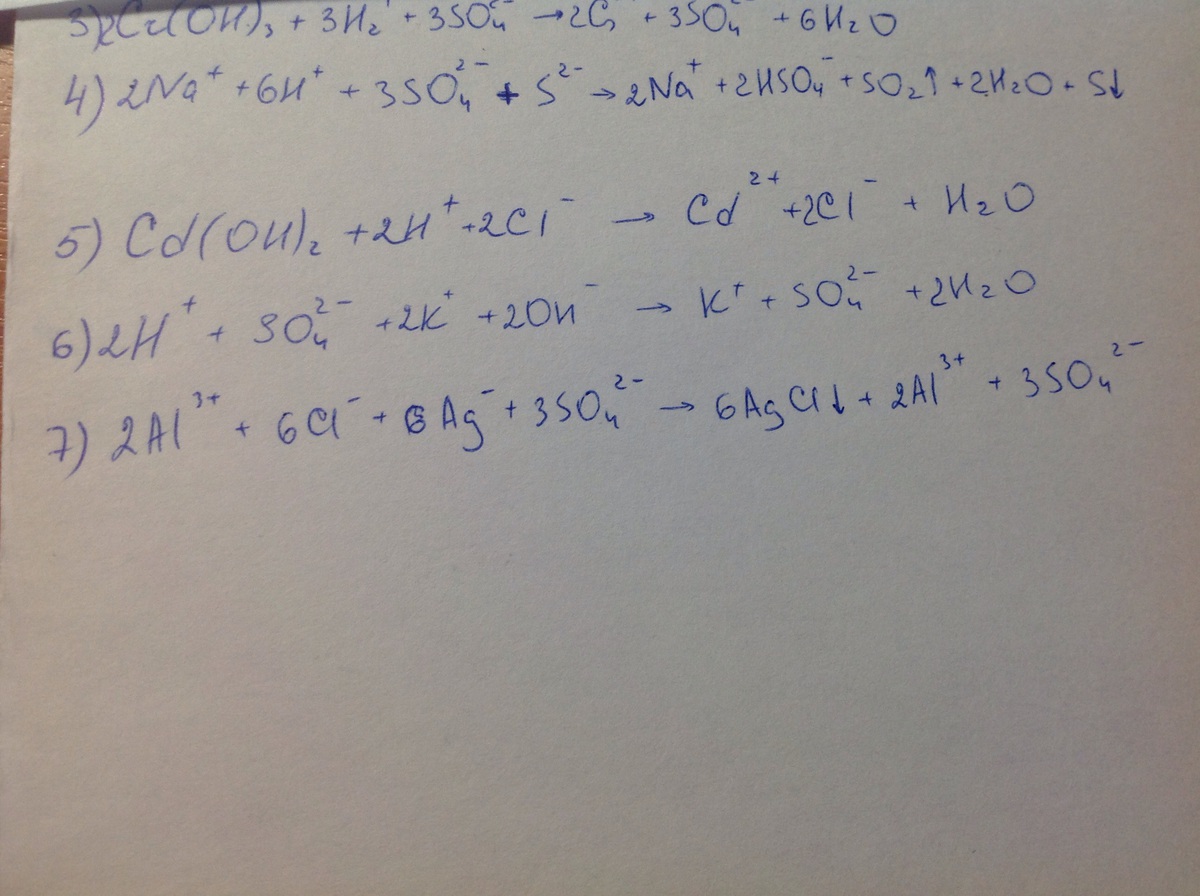 3) 2Cr(OH)₃ + 3H₂ + 3SO₄²⁻ → 2C + 3SO₄²⁻ + 6H₂O
4) 2Na⁺ + 6H⁺ + 3SO₄²⁻ + S²⁻ → 2Na⁺ + 2HSO₄⁻ + SO₂↑ + 2H₂O + S↓
5) Cd(OH)₂ + 2H⁺ + 2Cl⁻ → Cd²⁺ + 2Cl⁻ + H₂O
6) 2H⁺ + SO₄²⁻ + 2K⁺ + 2OH⁻ → K⁺ + SO₄²⁻ + 2H₂O
7) 2Al³⁺ + 6Cl⁻ + 6Ag⁻ + 3SO₄²⁻ → 6AgCl↓ + 2Al³⁺ + 3SO₄²⁻